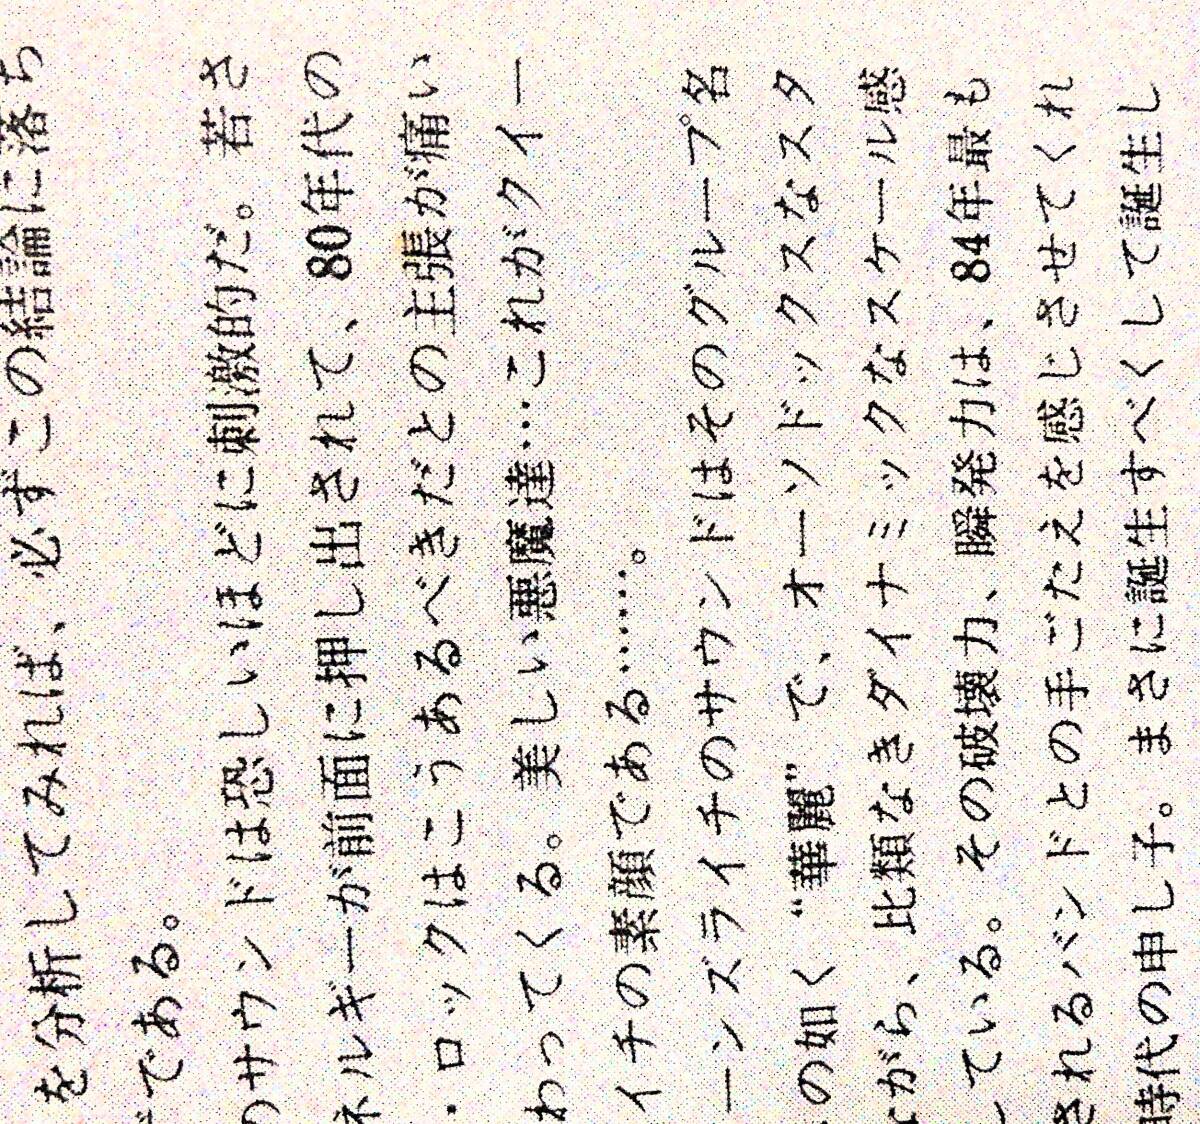 を分析してみれば、必ずこの結論に落ち
である。
のサウンドは恐しいほどに刺激的だ。若き
ネルギーが前面に押し出されて、80年代の
・ロックはこうあるべきだとの主張が痛い
わってくる。美しい悪魔達…これがクイー
イチの素顔である……。
ーンズライチのサウンドはそのグループ名
の如く“華麗”で、オーソドックスなスタ
がら、比類なきダイナミックなスケール感
ている。その破壊力、瞬発力は、84年最も
されるバンドとの手ごたえを感じさせてくれ
時代の申し子。まさに誕生すべくして誕生し